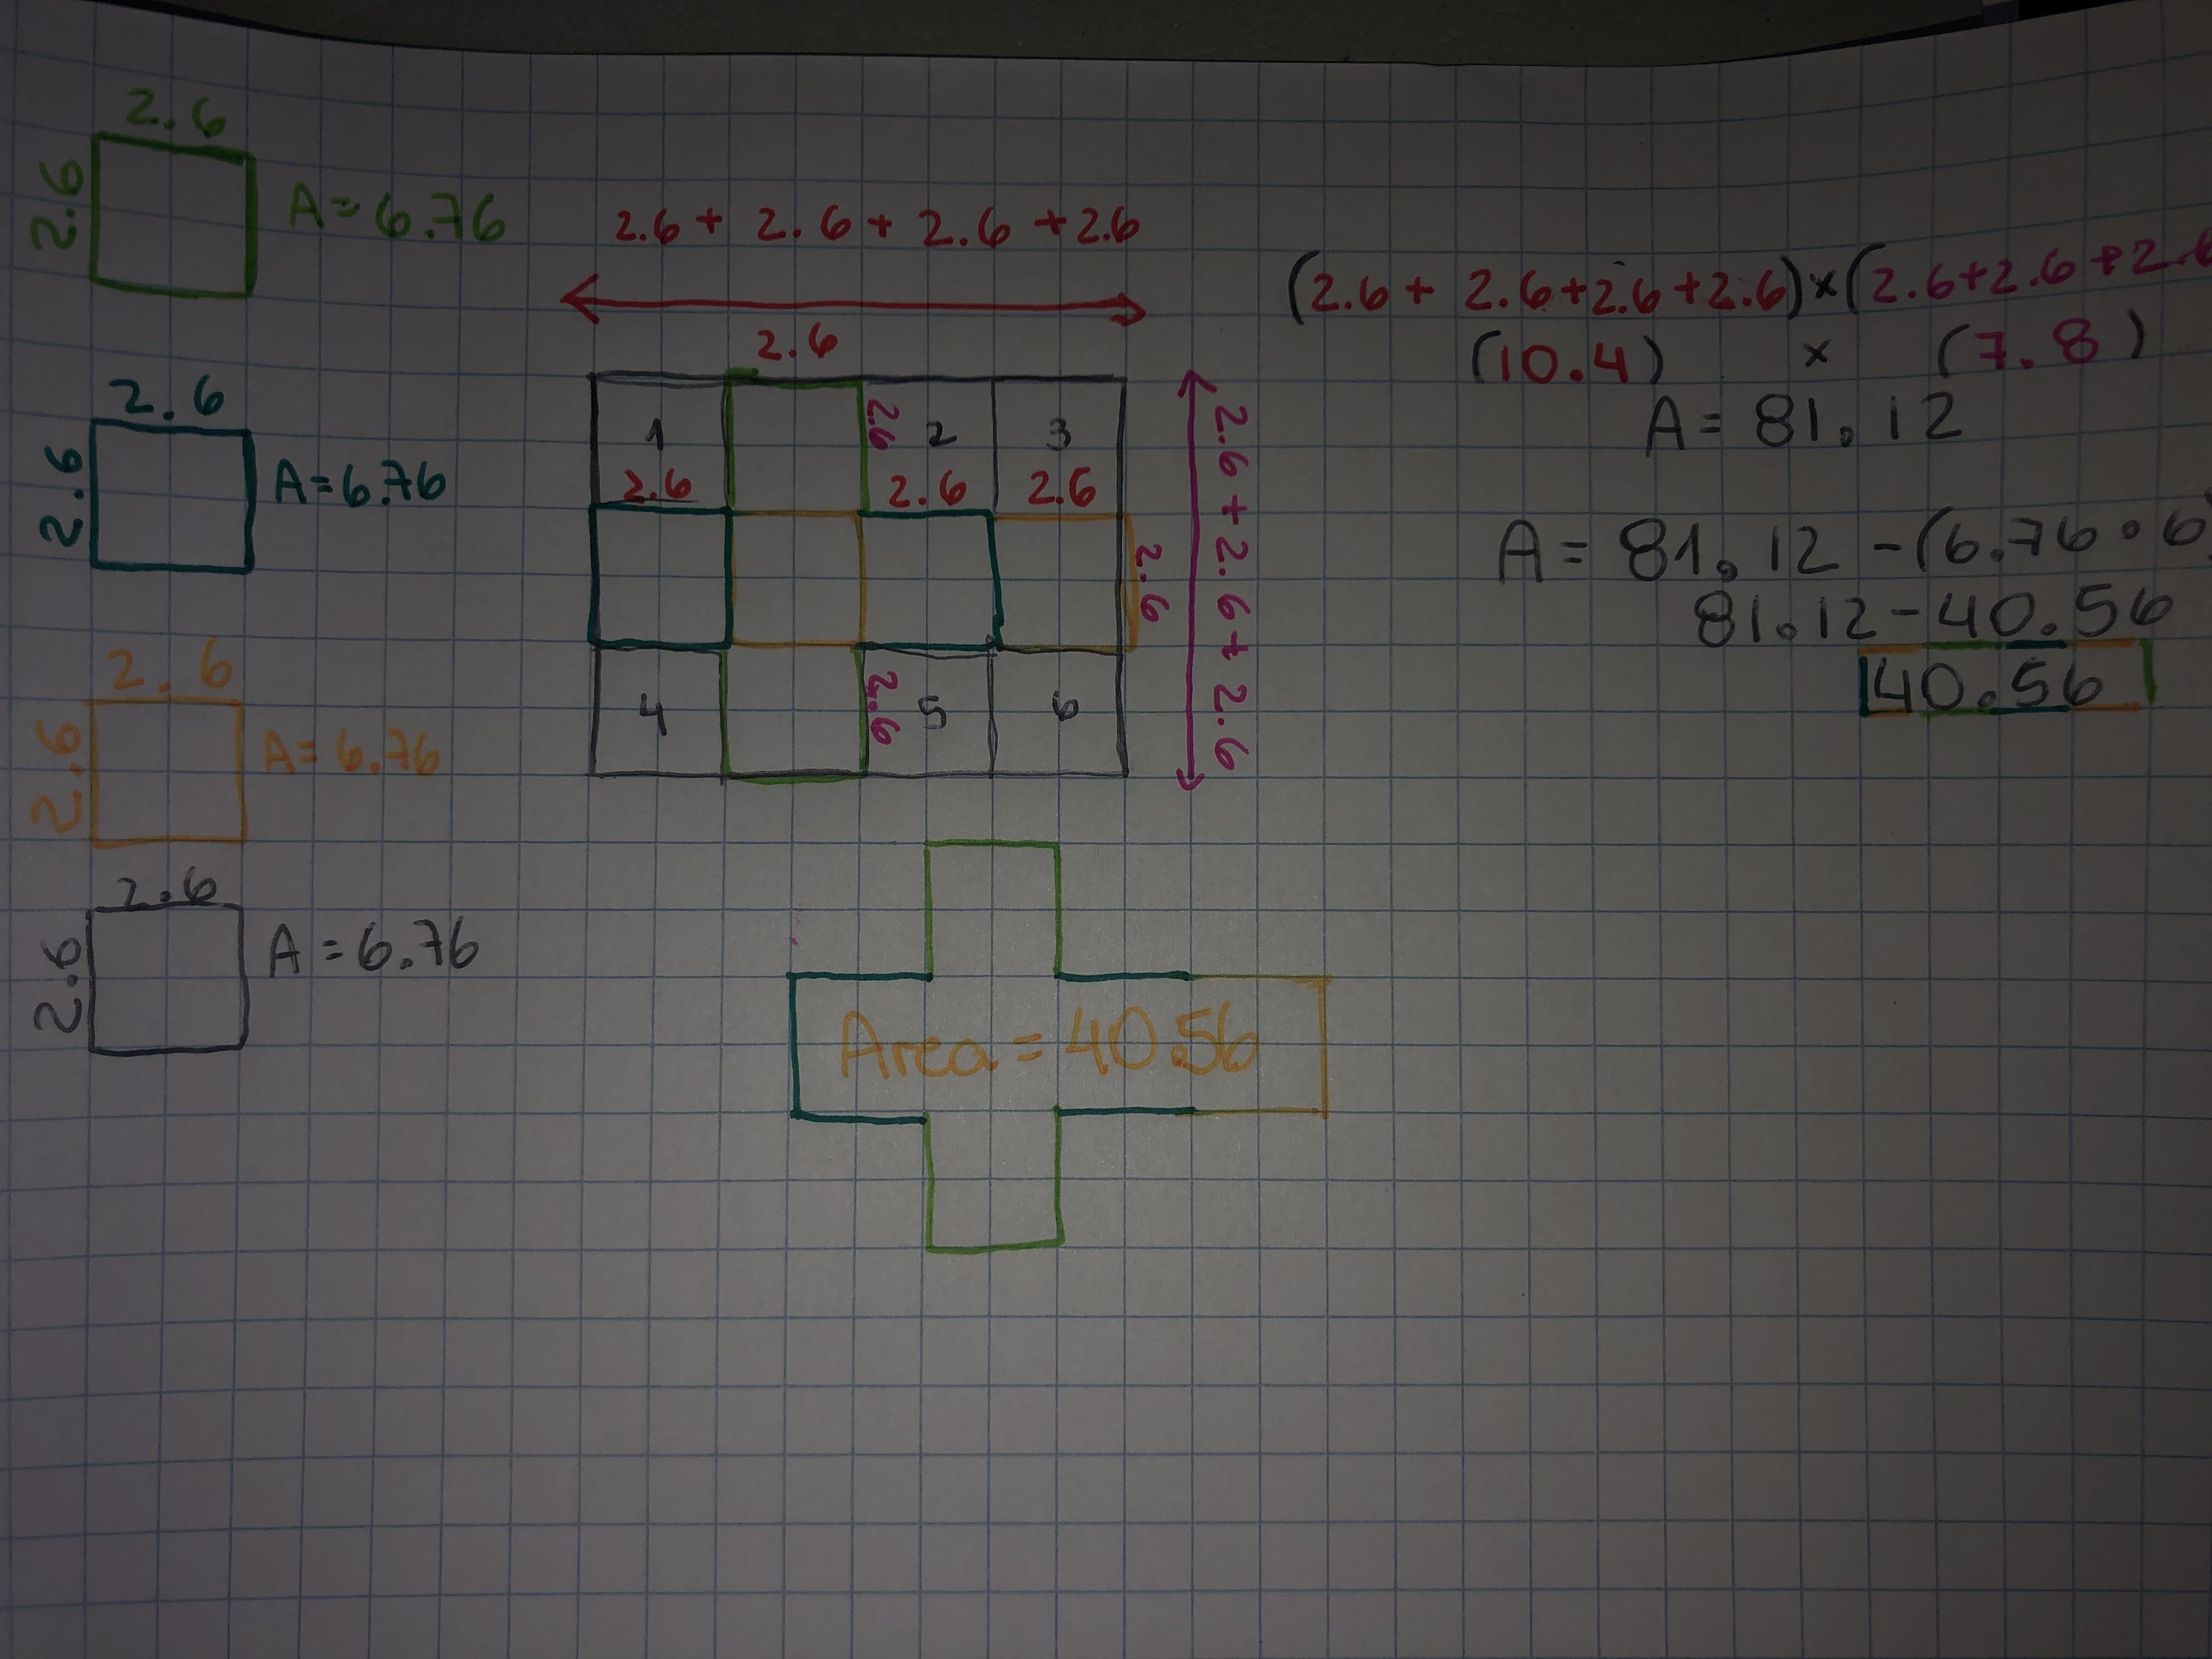 2.6
2.6
A=6.76
2.6
2.6
A=6.76
2.6
2.6
A=6.76
2.6
2.6
A=6.76
2.6+ 2.6+ 2.6 +2.6
2.6
1
2.6
2.6
2
2.6
3
2.6
2.6
4
2.6
5
6
2.6 + 2.6 + 2.6
Area=40.56
(2.6+ 2.6+2.6+2.6)×(2.6+2.6+2.6
(10.4) × (7.8)
A= 81.12
A= 81.12 -(6.76•6)
81.12-40.56
40.56